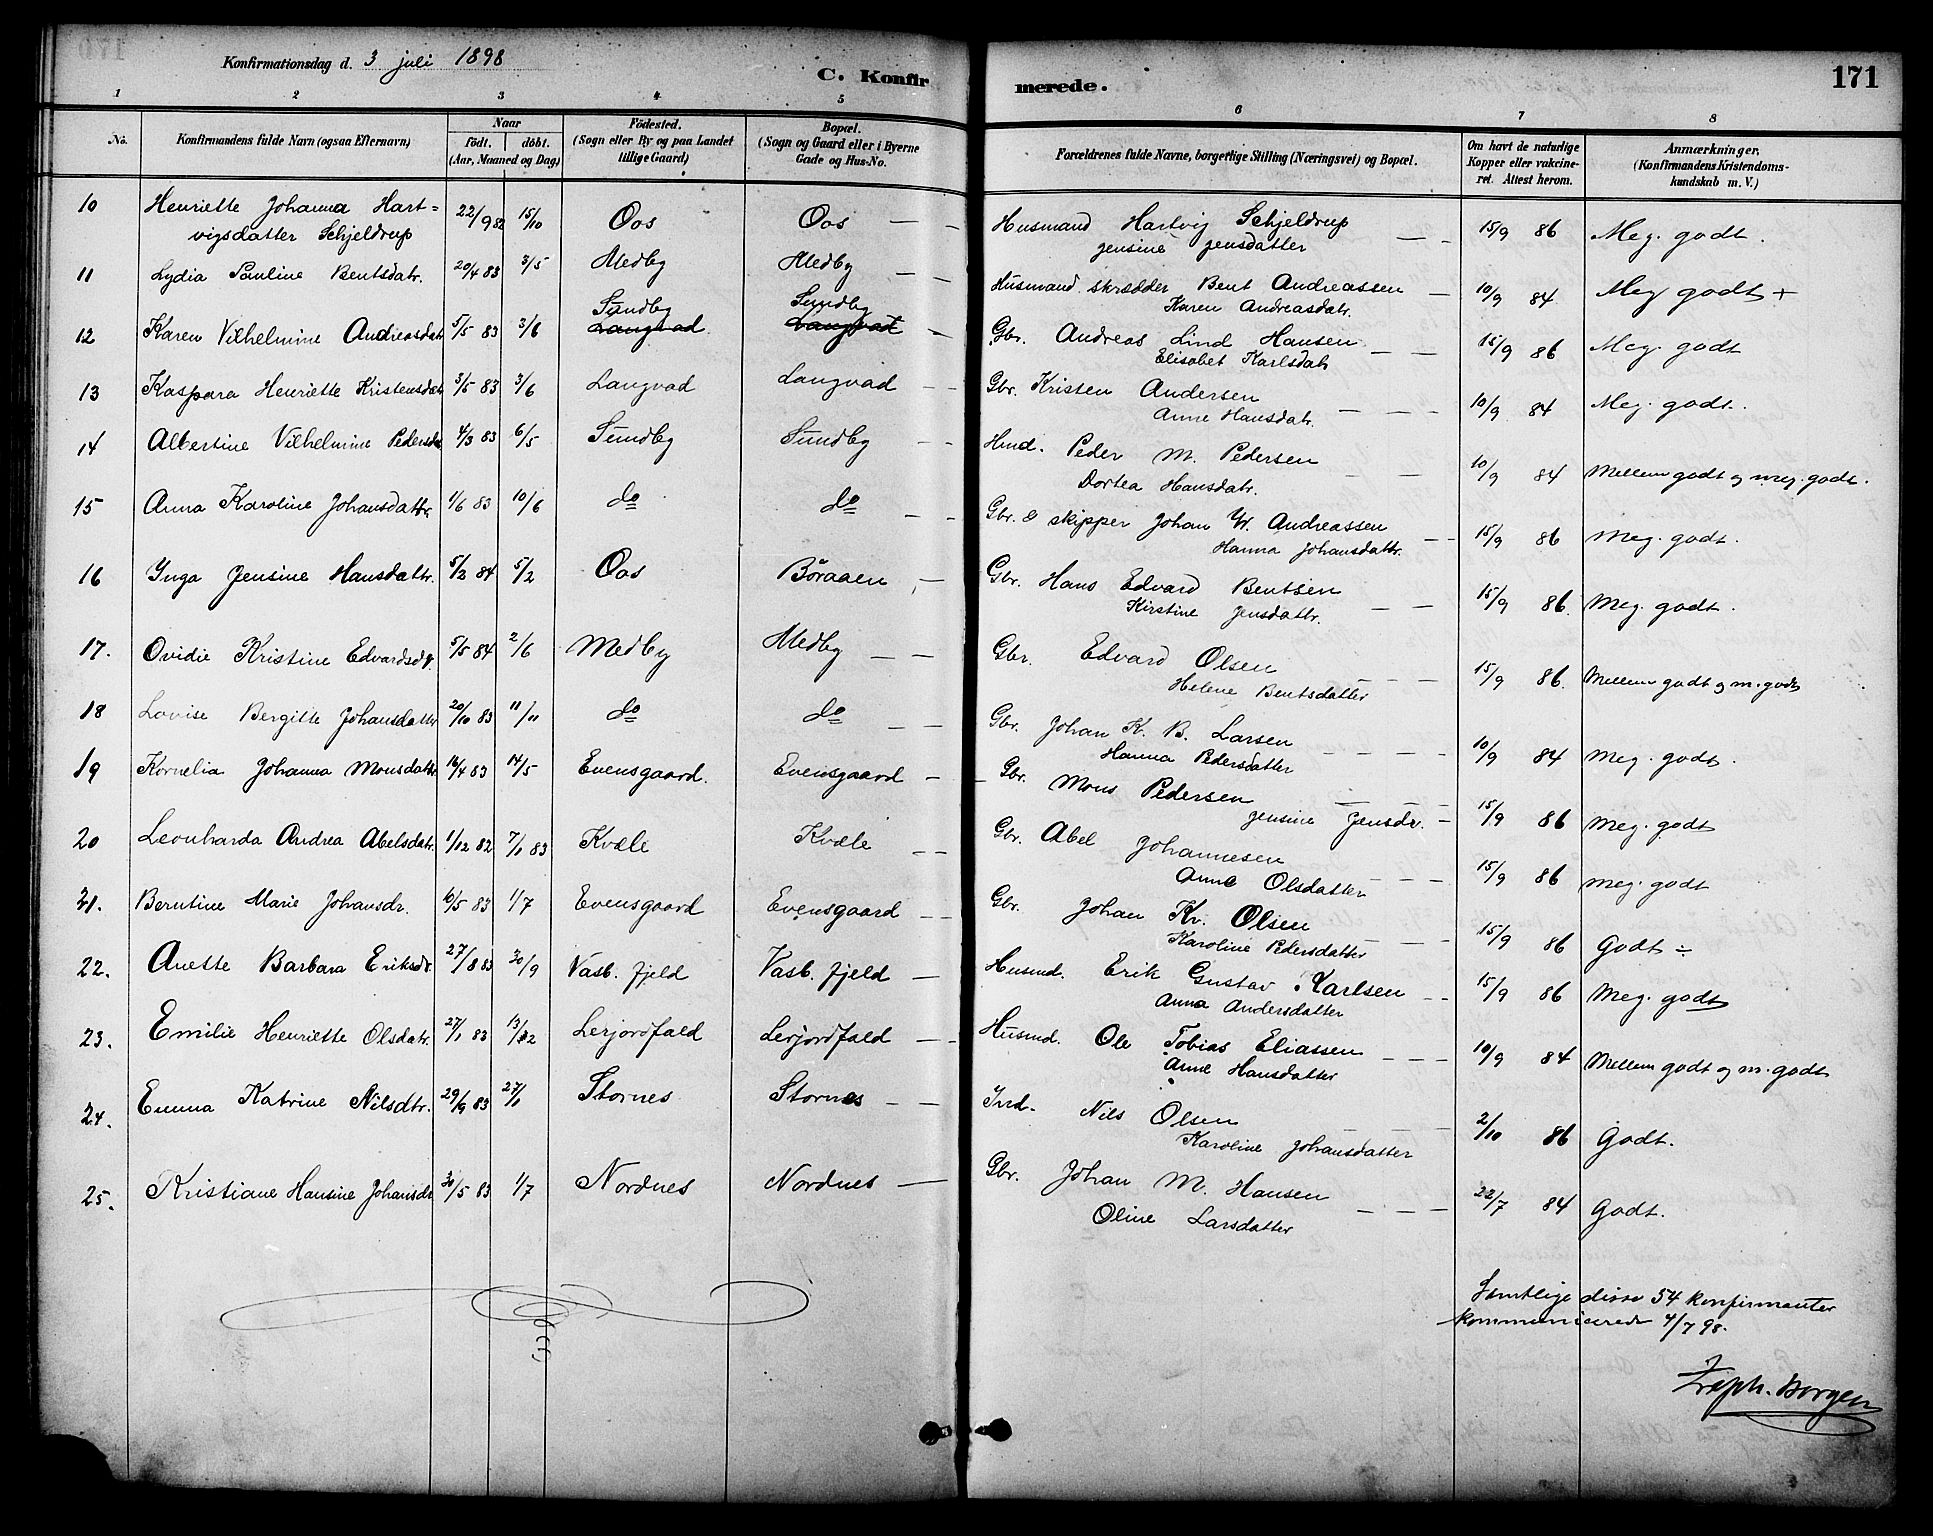 Konfirmationsdag d. 3 juli 1898
C. Konfir merede. 171
1 2 3 4 5 6 7 8
No. Konfirmandens fulde Navn (ogsaa Efternavn) Naar födt. döbt. (Aar, Maaned og Dag) Födested. (Sogn eller By og paa Landet tillige Gaard) Bopæl. (Sogn og Gaard eller i Byerne Gade og Hus-No. Forældrenes fulde Navne, borgerlige Stilling (Næringsvei) og Bopæl. Om havt de naturlige Kopper eller vakcineret. Attest herom. Anmærkninger, (Konfirmandens Kristendomskundskab m. V.)
10 Henriette Johanna Hart= 22/9 82 15/10 Oos Oos — Husmand Hartvig Schjeldrup — 15/9 86 Meg. godt.
vigsdatter Schjeldrup Jensine Jensdatter
11 Lydia Pauline Bentsdatr. 20/4 83 3/5 Medby Medby — Husmand skrædder Bent Andreassen — 10/9 84 Meg godt +
Karen Andreasdatr.
Sundby Sundby
12 Karen Vilhelmine Andreasdatr 5/5 83 3/6 Langvad Langvad — Gbr. Andreas Lind Hansen — — 15/9 86 Meg. godt
Elisabet Karlsdatr
13 Kaspara Henriette Kristensdatr 3/5 83 3/6 Langvad Langvad — — Gbr. Kristen Andersen 10/9 84 Meg. godt.
Anne Hansdatr. — — —
14 Albertine Vilhelmine Pedersdtr 4/3 83 6/5 Sundby Sundby — — Hmd. Peder M. Pedersen — — 10/9 84 Mellem godt og meg. godt.
Dortea Hansdatr.
15 Anna Karoline Johansdattr. 1/6 83 10/6 do do — — Gbr. & skipper Johan W. Andreassen — — 15/9 86 Meg. godt.
Hanna Johansdattr.
16 Inga Jensine Hansdattr. 5/2 84 5/2 Oos Böraaen — Gbr. Hans Edvard Bentsen 15/9 86. Meg. godt.
Kirstine Jensdattr. — —
17. Ovidie Kristine Edvardsdtr. 5/5 84 2/6 Medby Medby — — Gbr. Edvard Olsen — — — 15/9 86. Mellem godt og m. godt
Helene Bentsdatter
18 Lovise Bergitte Johansdattr 20/10 83 11/11 do do — — Gbr. Johan K. B. Larsen — — — — 10/9 84 Meg. godt.
Hanna Pedersdatter
19 Kornelia Johanna Monsdattr 16/4 83 14/5 Evensgaard. Evensgaard — Gbr. Mons Pedersen — — — 15/9 86 Meg. godt
Jensine Jensdr. —
20 Leonharda Andrea Abelsdatr. 1/12 82 7/1 83 Kvæle Kvæle — — Gbr. Abel Johannesen 15/9 86 Meg. godt
Anne Olsdatter — — —
21. Berntine Marie Johansdr. 10/5 83 1/7 Evensgaard Evensgaard — — Gbr. Johan Kr. Olsen 15/9 86 Godt ÷
Karoline Pedersdatter — — —
22. Anette Barbara Eriksdr. 27/8 83 30/9 Vasb. fjeld Vasb. fjeld — Husmd. Erik Gustav Karlsen — — 15/9 86 Meg. godt
Anna Andersdatter
23. Emilie Henriette Olsdatr. 27/1 83 Lerjordfald Lerjordfald — — Husmd. Ole Tobias Eliassen — — — 10/9 84 Mellem godt og m. godt
Anne Hansdatter
24. Emma Katrine Nilsdtr. 29/9 83 Stornes Stornes — — Ind. Nils Olsen — — — 2/10 86 Godt.
Karoline Johansdatter
25. Kristiane Hansine Johansdr 30/5 83 1/7 Nordnes Nordnes — Gbr. Johan M. Hansen — — — 22/7 84 Godt.
Oline Larsdatter
Samtlige disse 54 konfirmanter
kommunicerede 4/7 98.
Borgen